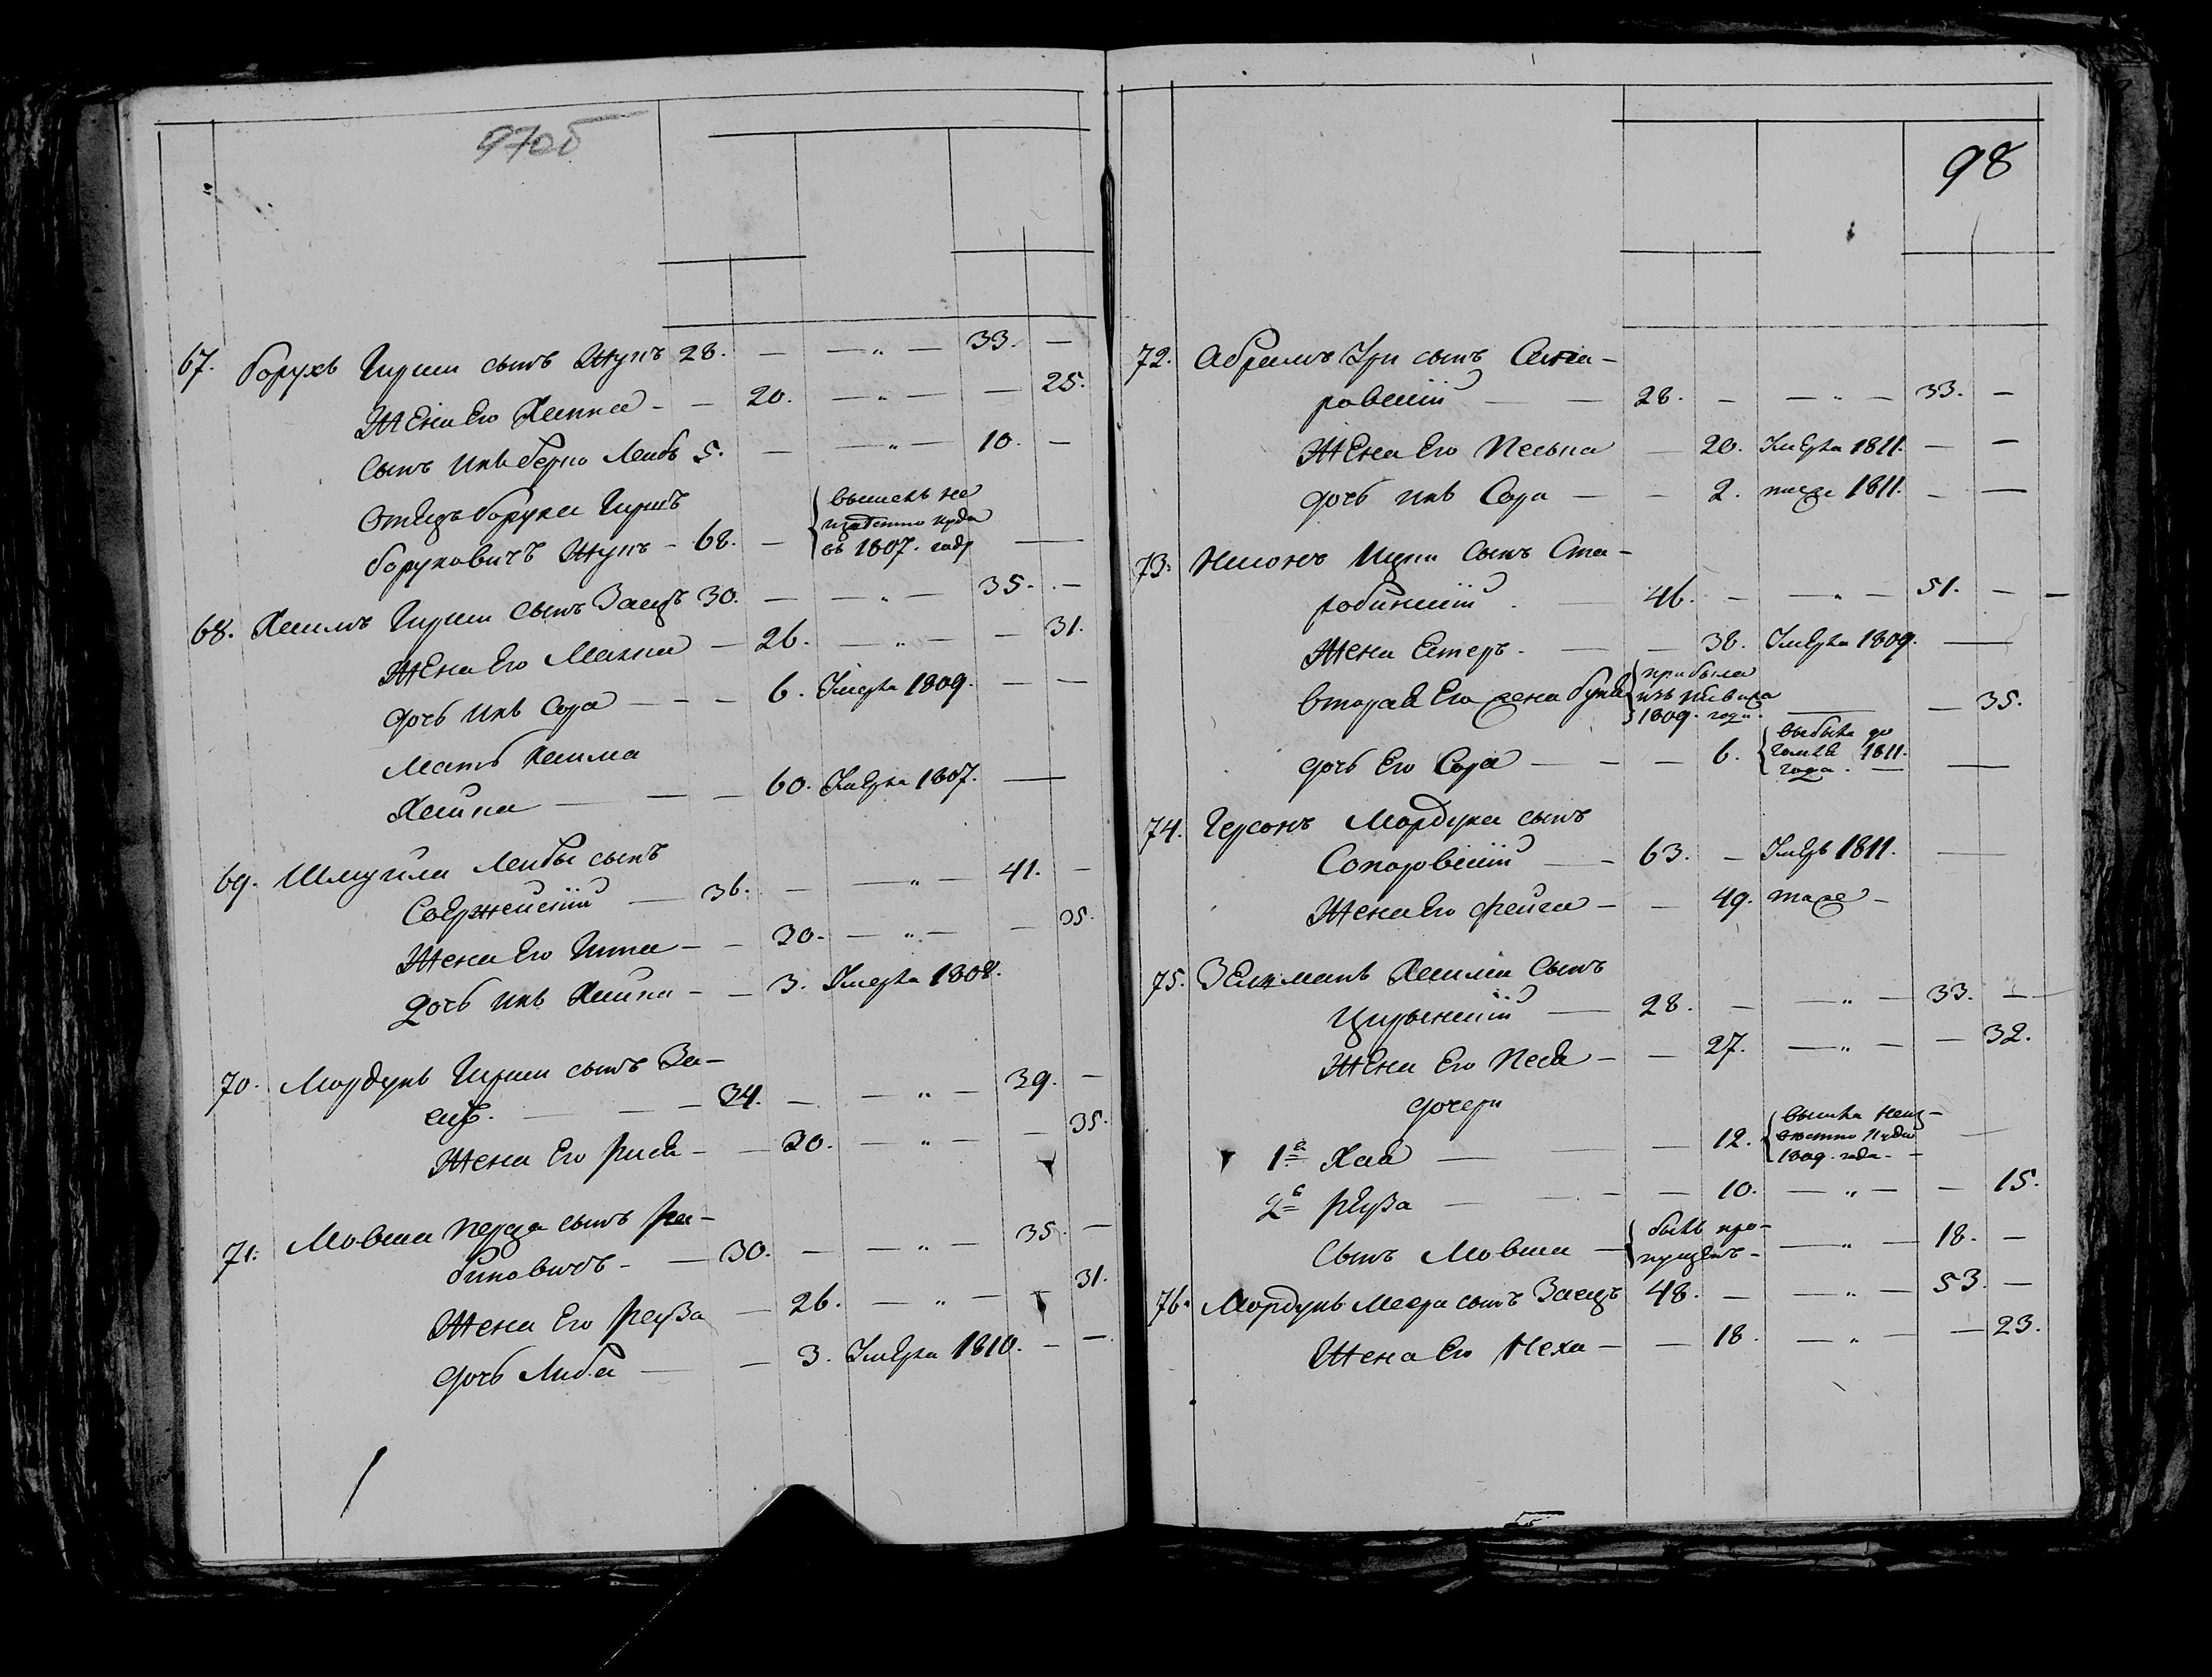 97об
67. Борухъ Гирши сынъ Жукъ 28. — — „ — 33. —
Жена Его Хашка — — 20. — „ — — 25.
Сынъ ихъ Берко Лейбъ 5. — — „ — 10. —
Отецъ Боруха Гиршъ
Боруховичъ Жукъ — 68. — вышелъ не
извѣстно куда
въ 1807. году —
68. Хаимъ Гирши сынъ Заецъ 30. — — „ — 35. —
Жена Его Малка — 26. — „ — — 31.
дочь ихъ Сора — — — 6. Умерла 1809. — —
Мать Хаима
Хайка — — — 60. Умерла 1807. —
69. Шмуйла Лейбы сынъ
Свержейскій — 36. — — „ — 41. —
Жена Его Гита — — 30. — „ — — 35.
дочь ихъ Хайка — — 3. Умерла 1808.
70. Мордухъ Гирши сынъ За-
ецъ. — — — 34. — — „ — 39. —
Жена Его Рися — — 30. — „ — — 35.
71. Мовша Перца сынъ Ра-
биновичъ — — 30. — — „ — 35. —
Жена Его Рейза — 26. — „ — — 31.
дочь Либа — — 3. Умерла 1810. — —
98
72. Абрамъ Ури сынъ
ровскій — — 28. — — „ — 33. —
Жена Его Песька — 20. Умерла 1811. — —
дочь ихъ Сора — — 2. тоже 1811. — —
73. Нисонъ Ицки сынъ Ста-
робинскій — 46. — — „ — 51. — —
Жена Естеръ — — — 38. Умерла 1809. —
вторая Его жена прибыла
изъ
1809. года. — — 35.
дочь Его Сора — — — 6. выбыла до
1811.
года. — —
74. Герсонъ Мордуха сынъ
Сопоровскій — — 63. — Умеръ 1811. —
Жена Его Фейга — — 49. тоже —
75. Зелманъ Хаима сынъ
Цирынскій — 28. — — „ — 33. —
Жена Его Песя — — 27. — „ — — 32.
дочери
1я Хая — — — 12. вышла неиз-
вѣстно куда
1809. года — —
2я Рейза — — — — 10. — „ — — 15.
Сынъ Мовша — былъ про-
пущенъ — — „ — 18. —
76. Мордухъ Меера сынъ Заецъ 48. — — „ — 53. —
Жена Его Неха — — 18. — „ — — 23.